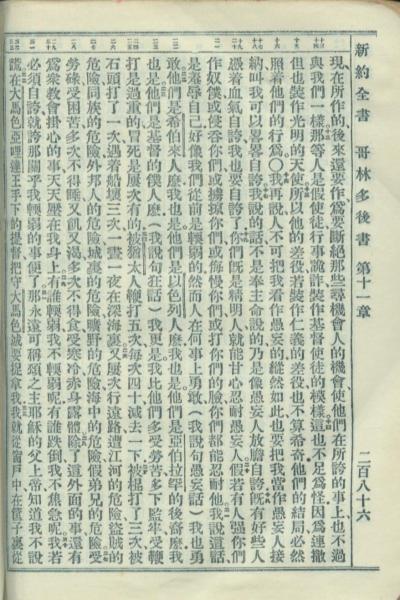 新約全書　哥林多後書　第十一章　二百八十六
現在所作的後來還要作爲要斷絕那些尋機會人的機會使他們在所誇的事上也不過
與我們一樣那等人是假使徒行事詭詐裝作基督使徒的模樣這也不足爲怪因爲連撒
但也裝作光明的天使所以他的差役若裝作仁義的差役也不算希奇他們的結局必然
照着他們的行爲〇我再說人不可把我看作愚妄的縱然如此也要把我當作愚妄人接
納叫我可以畧畧自誇我說的話不是奉主命說的乃是像愚妄人放膽自誇旣有好些人
憑着血氣自誇我也要自誇了你們旣是精明人就能甘心忍耐愚妄人假若有人强你們
作奴僕或侵吞你們或擄掠你們或侮慢你們或打你們的臉你們都能忍耐他我說這話
是羞辱自己好像我們從前是輭弱的然而人在何事上勇敢（我說句愚妄話）我也勇
敢他們是希伯來人麽我也是他們是以色列人麽我也是他們是亞伯拉罕的後裔麽我
也是他們是基督的僕人麽（我說句狂話）我更是我比他們多受勞苦多下監牢受鞭
打是過重的冒死是屢次有的被猶太人鞭打五次每次四十減去一下被棍打了三次被
石頭打了一次遇着船壞三次一晝一夜在深海裏又屢次行遠路遭江河的危險盜賊的
危險同族的危險外邦人的危險城裏的危險曠野的危險海中的危險假弟兄的危險受
勞碌受困苦多次不得睡又飢又渴多次不得食受寒冷赤身露體除了這外面的事還有
爲衆教會掛心的事天天壓在我身上有誰輭弱我不輭弱呢有誰跌倒我不焦急呢我若
必須自誇就誇那關乎我輭弱的事便了那永遠可稱頌之主耶穌的父上帝知道我不說
謊在大馬色亞哩達王手下的提督把守大馬色城要捉拿我我就從窗戶中在筐子裏從